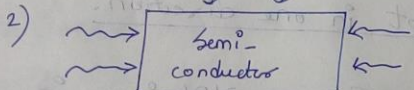 2)
Semi-
conductor